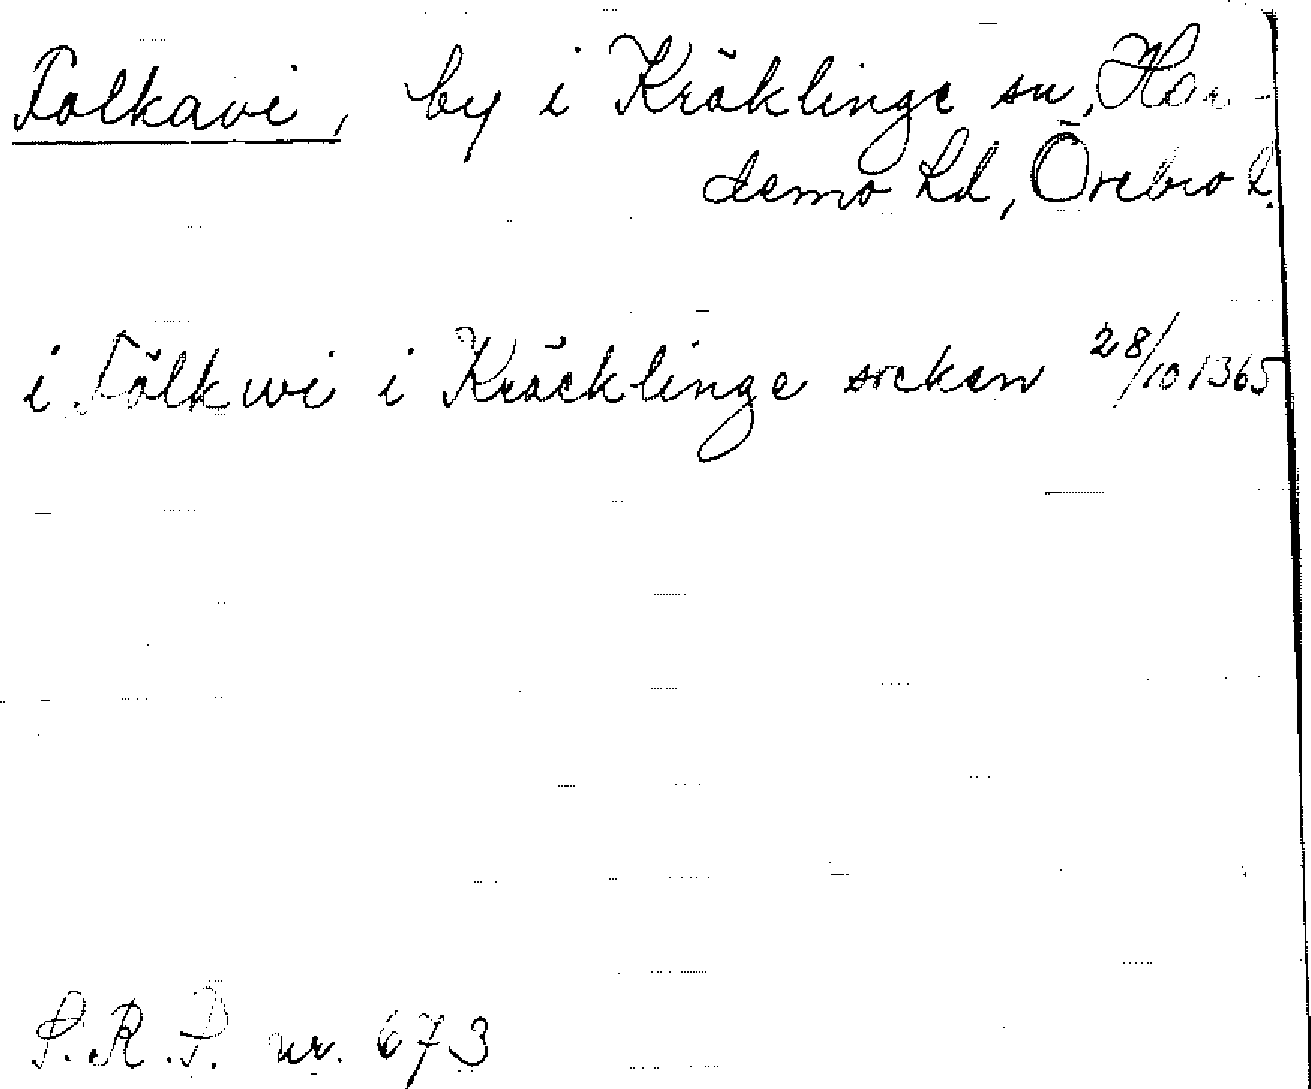 Folkavi, by i Kräklinge sn, Har-
demo hd, Örebro l.
i Fölkwi i Kräcklinge socken 28/10 1365
S.R.P. nr. 673